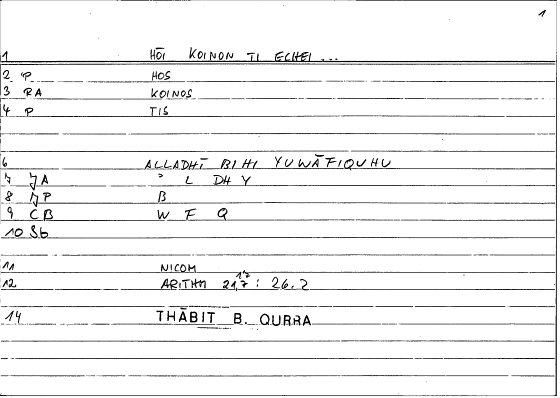 1
1 HŌI KOINON TI ECHEI ...
2 P HOS
3 RA KOINOS
4 P TIS
6 ALLADHĪ BIHI YUWĀFIQUHU
7 JA ʾ L DH Y
8 JP B
9 CB W F Q
10 Sb
11 NICOM
12 ARITHM 21,7 17 : 26,2
14 THĀBIT B. QURRA